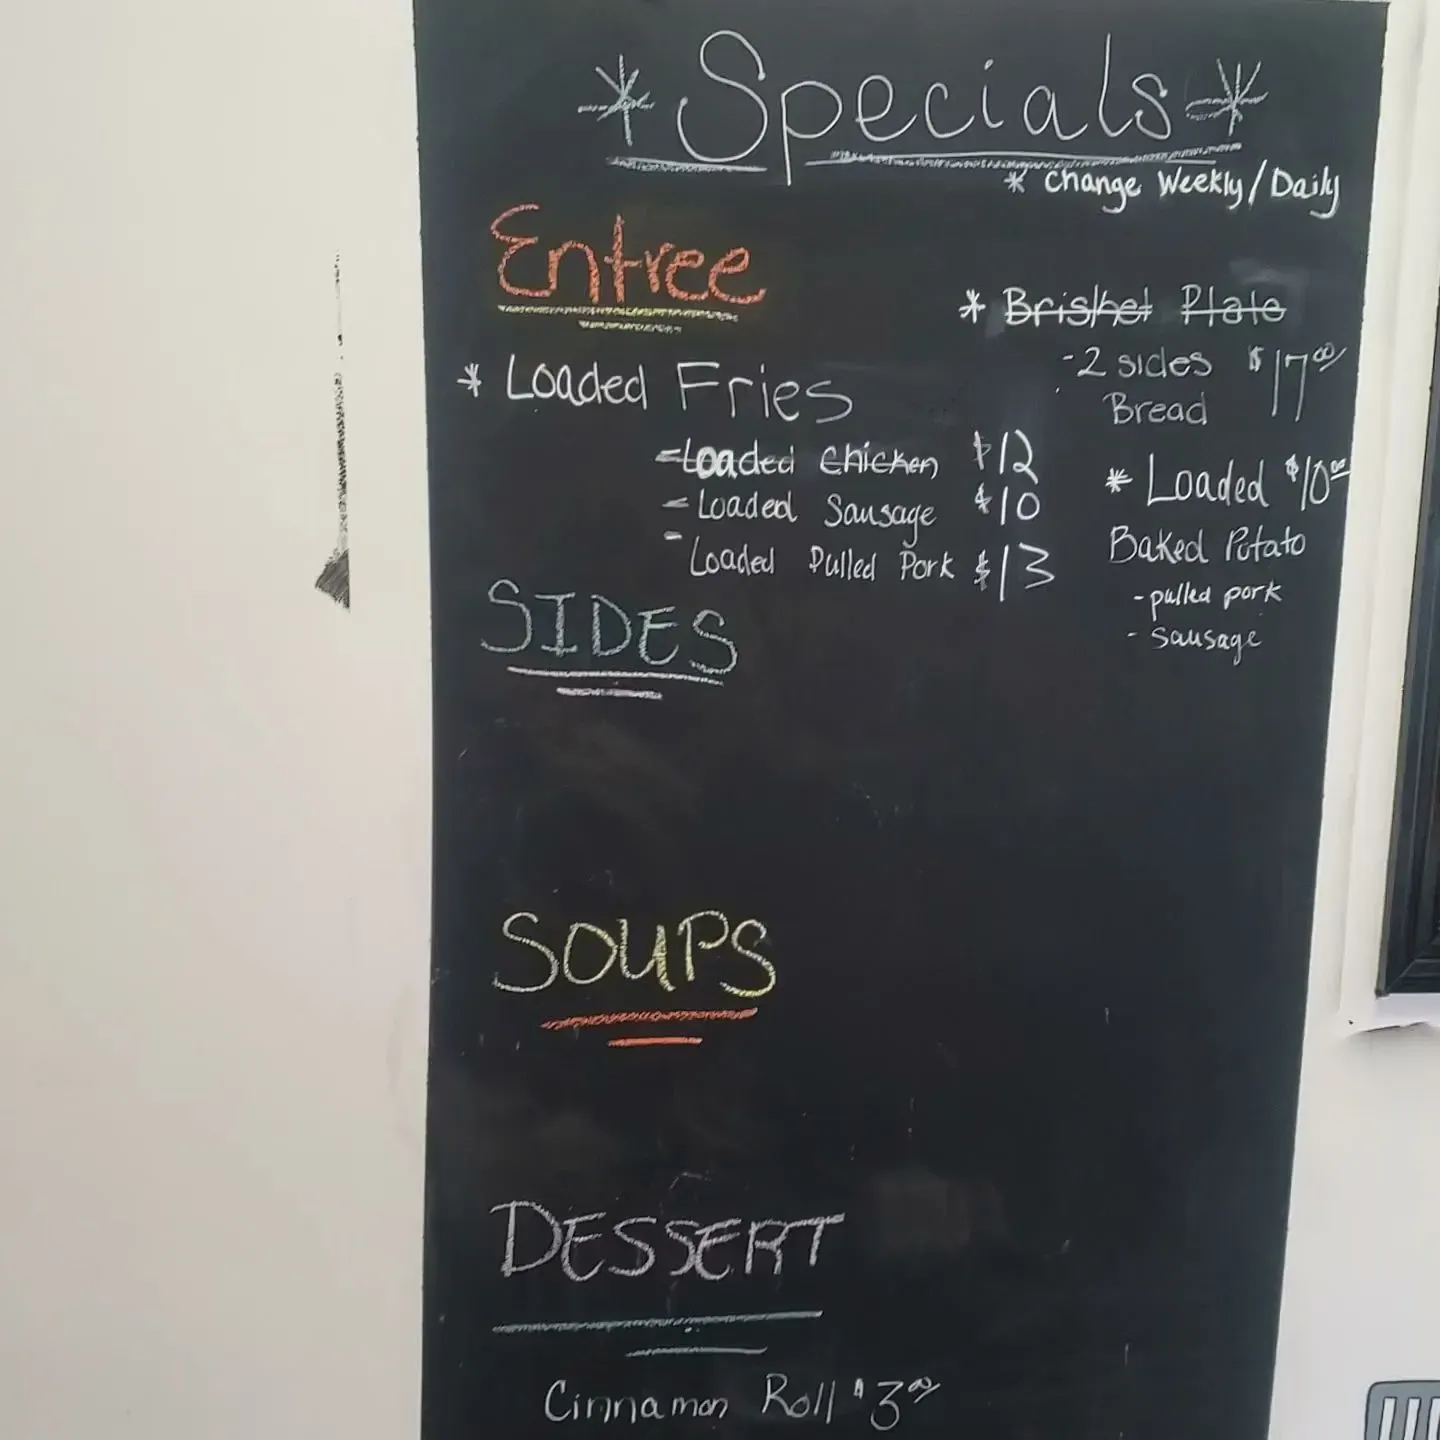 * Specials *
* Change Weekly/Daily
Entree
* Loaded Fries
- Loaded Chicken $12
- Loaded Sausage $10
- Loaded Pulled Pork $13
* Brisket Plate
- 2 sides $17.00
Bread
* Loaded $10.00
Baked Potato
- pulled pork
- sausage
SIDES
SOUPS
DESSERT
Cinnamon Roll $3.00